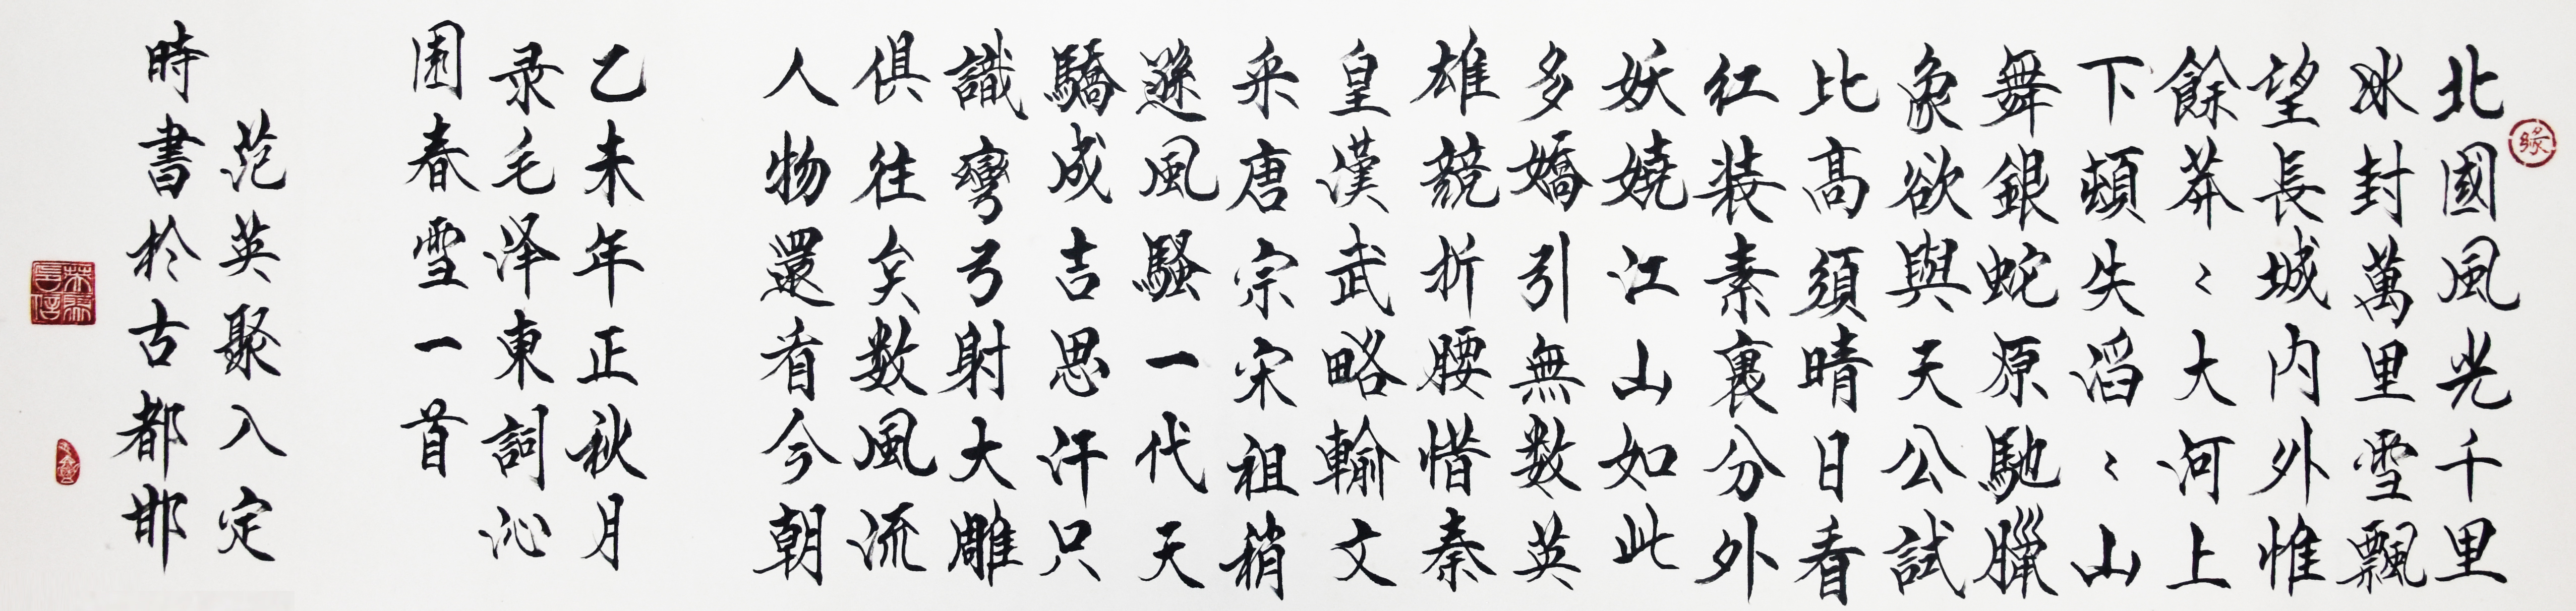 缘
北國風光千里
冰封萬里雪飄
望長城内外惟
餘莽〻大河上
下頓失滔〻山
舞銀蛇原馳臘
象欲與天公試
比高須晴日看
红装素裏分外
妖嬈江山如此
多嬌引無数英
雄競折腰惜秦
皇漢武略輸文
采唐宗宋祖稍
遜風騷一代天
驕成吉思汗只
識彎弓射大雕
俱往矣数風流
人物還看今朝
乙未年正秋月
录毛泽東詞沁
園春雪一首
范英聚入定
時書於古都邯